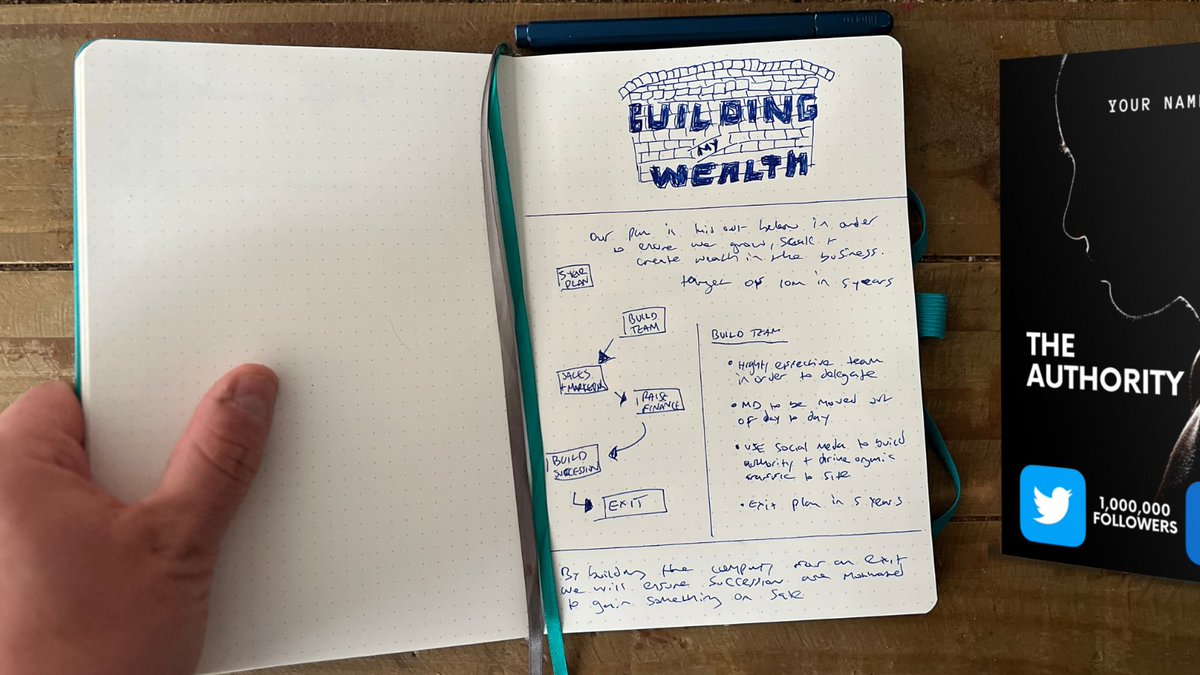 BUILDING
MY
WEALTH
Our plan is this out below in order
to ensure we grow, scale +
create wealth in the business.
5 YEAR
PLAN
target of 10m in 5 years
BUILD
TEAM
SALES
+ MARKETING
RAISE
FINANCE
BUILD
SUCCESSION
EXIT
BUILD TEAM
• Highly effective team
in order to delegate
• MD to be moved out
of day to day
• USE Social media to build
authority + drive organic
traffic to site
• Exit plan in 5 years
By building the company over an exit
we will ensure succession are motivated
to gain something on sale
YOUR NAM
THE
AUTHORITY
1,000,000
FOLLOWERS